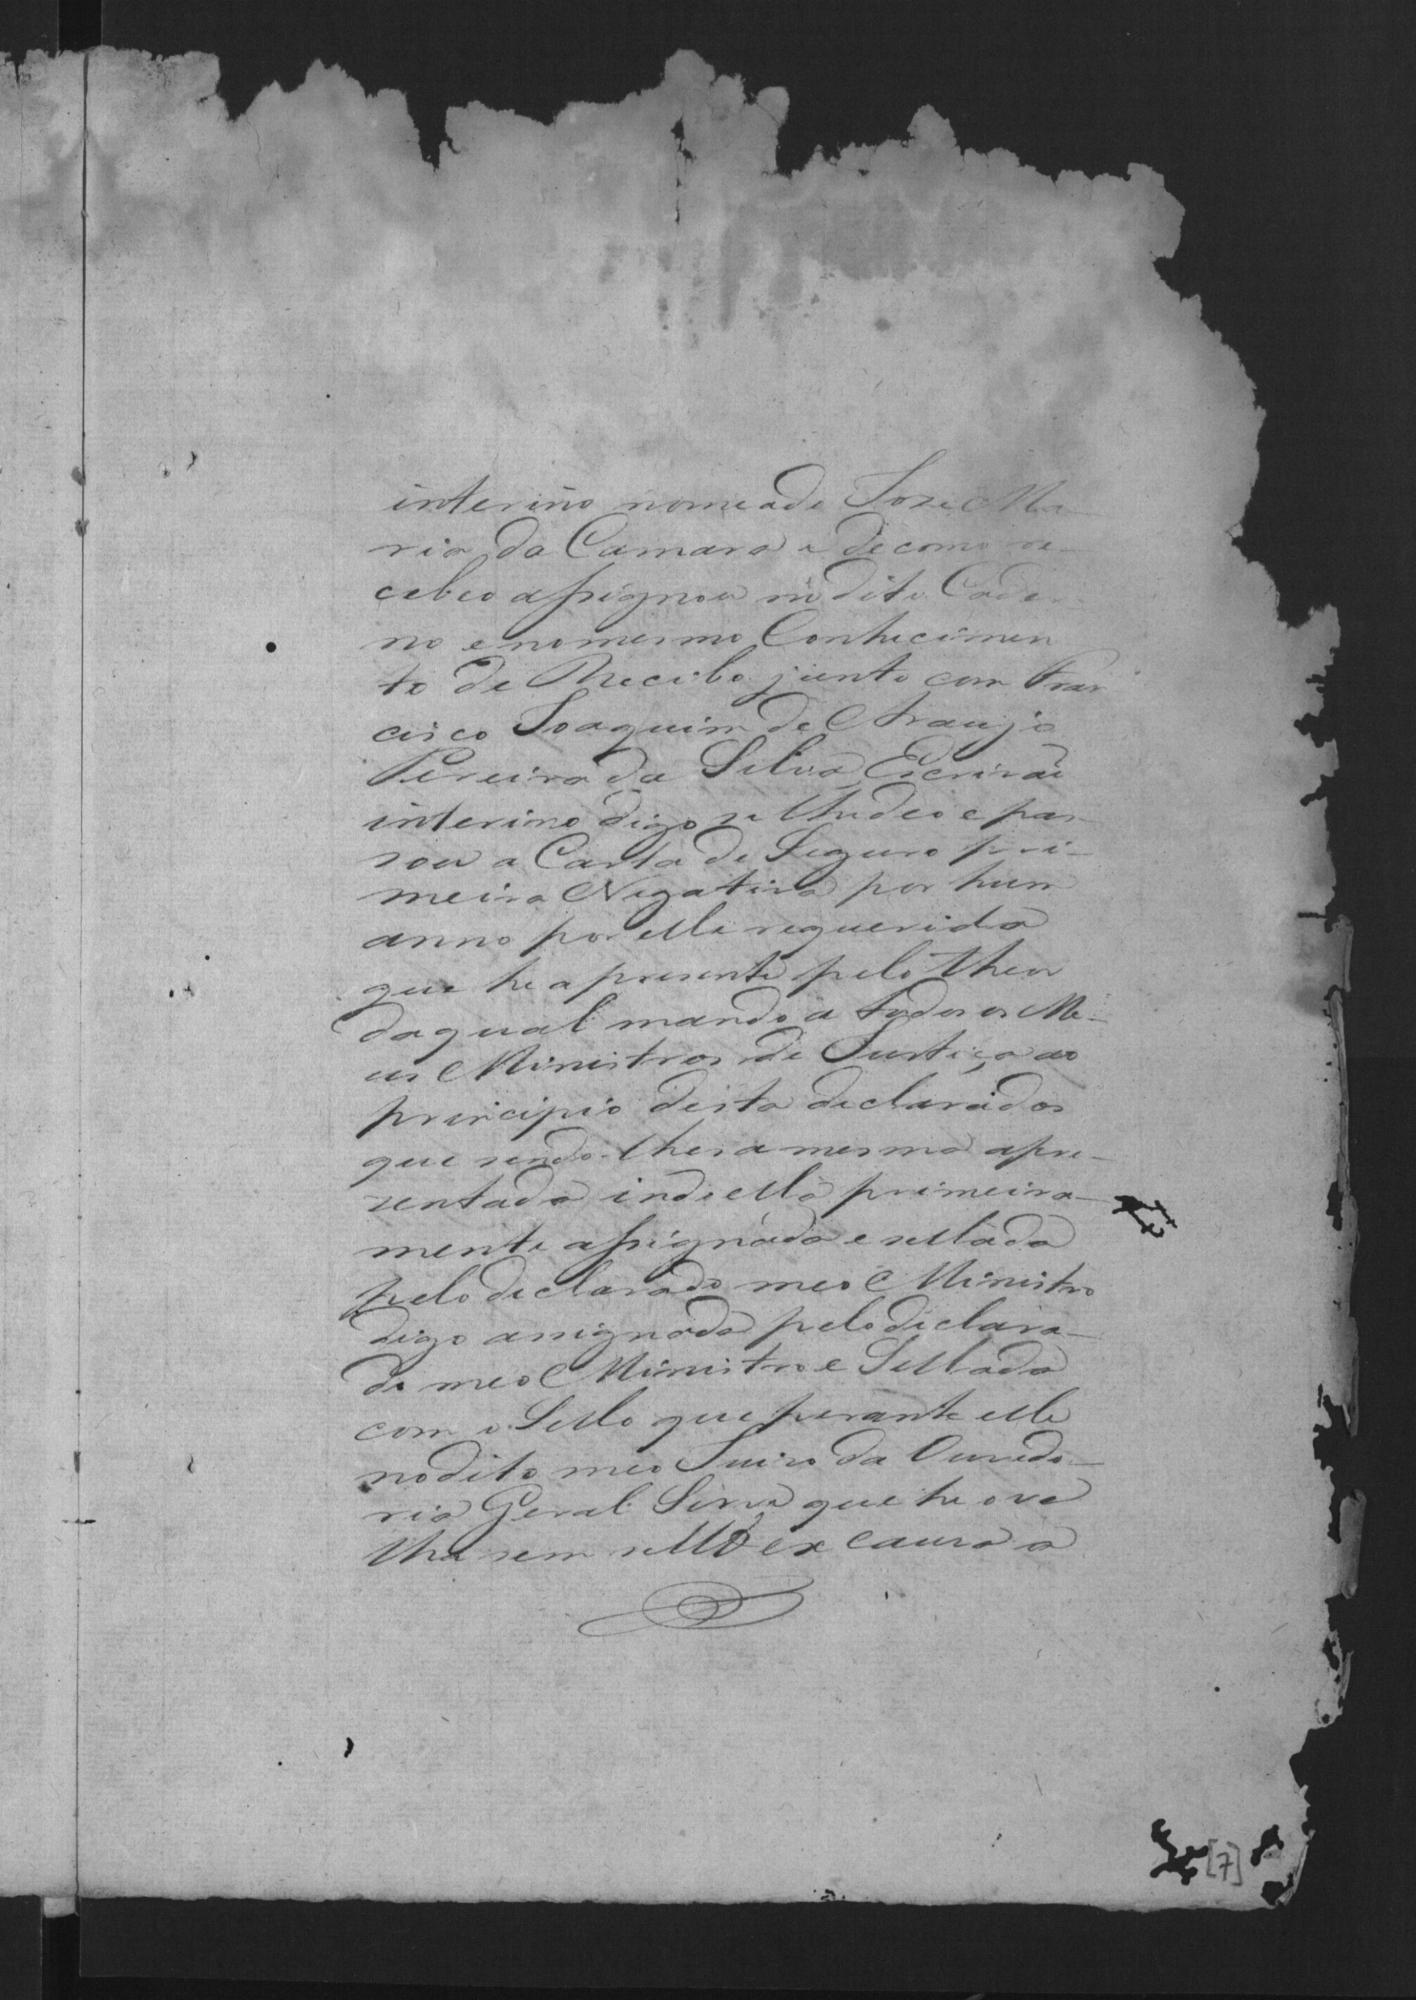 interino nomeado Jose Ma-
ria da Camara e de como re-
cebeo assignou no dito Cader-
no e no mesmo Conhecimen
to de Recibo junto com Fran
cisco Joaquim de Araujo
Pereira da Silva Escrivaõ
interino digo se lhe deo e pas-
sou a Carta de Seguro pri-
meira Negativa por hum
anno por elle requerida
que he a presente pelo theor
da qual mando a todos os Me-
us Ministros de Justiça ao
principio desta declarados
que sendo-lhes a mesma apre-
zentada indo ella primeira-
mente assignada e sellada
pelo declarado meo Ministro
digo assignada pelo declara-
do meo Ministro e Sellada
com o Sello que perante elle
no dito meo Juizo da Ouvedo-
ria Geral Serve que he o va
lha sem sello ex causa a
[7]